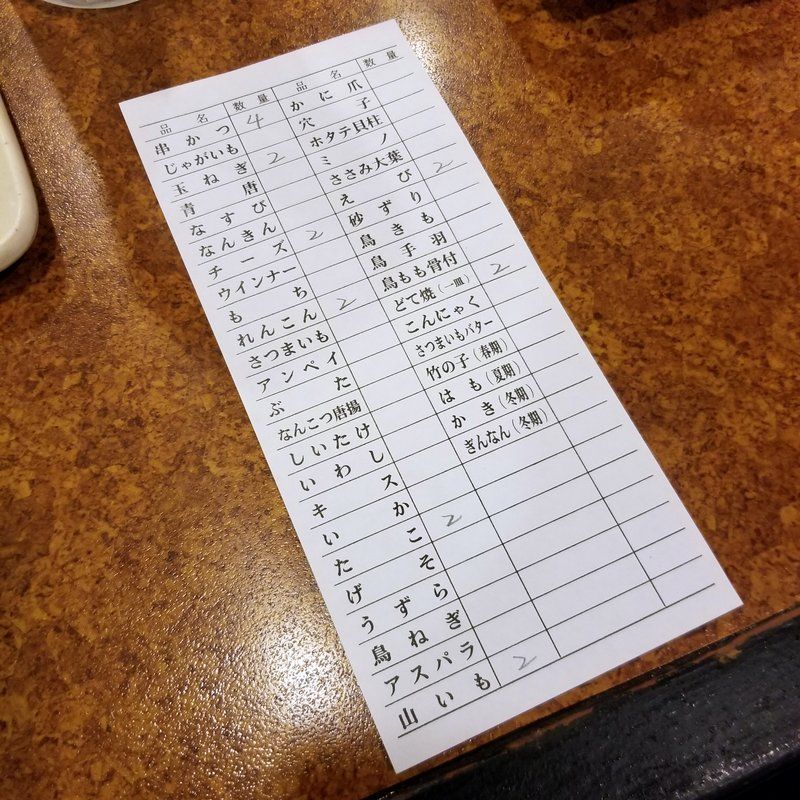 品名 数量
串かつ 4
じゃがいも
玉ねぎ 2
青唐
なすび
なんきん
チーズ 2
ウインナー
もち
れんこん 2
さつまいも
アンペイ
ぶた
なんこつ唐揚
しいたけ
いわし
キス
いか
たこ 2
げそ
うずら
鳥ねぎ
アスパラ
山いも 2
品名 数量
かに爪
穴子
ホタテ貝柱
ミノ
ささみ大葉
えび 2
砂ずり
鳥きも
鳥手羽
鳥もも骨付
どて焼(一皿) 2
こんにゃく
さつまいもバター
竹の子(春期)
はも(夏期)
かき(冬期)
ぎんなん(冬期)